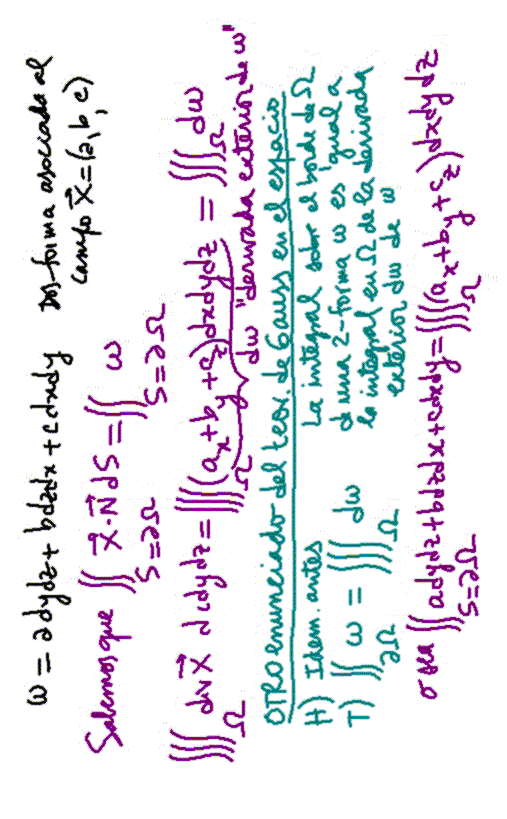 ω = adydz + bdzdx + cdxdy   Dos-forma asociada al
campo X⃗=(a,b,c)
Sabemos que ∬_{S=∂Ω} X⃗·N⃗ dS = ∬_{S=∂Ω} ω
∭_Ω div X⃗ dxdydz = ∭_Ω (a_x+b_y+c_z)dxdydz = ∭_Ω dω
dω "derivada exterior de ω"
OTRO enunciado del teor. de Gauss en el espacio
H) Idem. antes   La integral sobre el borde de Ω
T) ∬_{∂Ω} ω = ∭_Ω dω   de una 2-forma ω es igual a
la integral en Ω de la derivada
exterior dω de ω
o sea ∬_{S=∂Ω} adydz+bdzdx+cdxdy = ∭_Ω (a_x+b_y+c_z)dxdydz